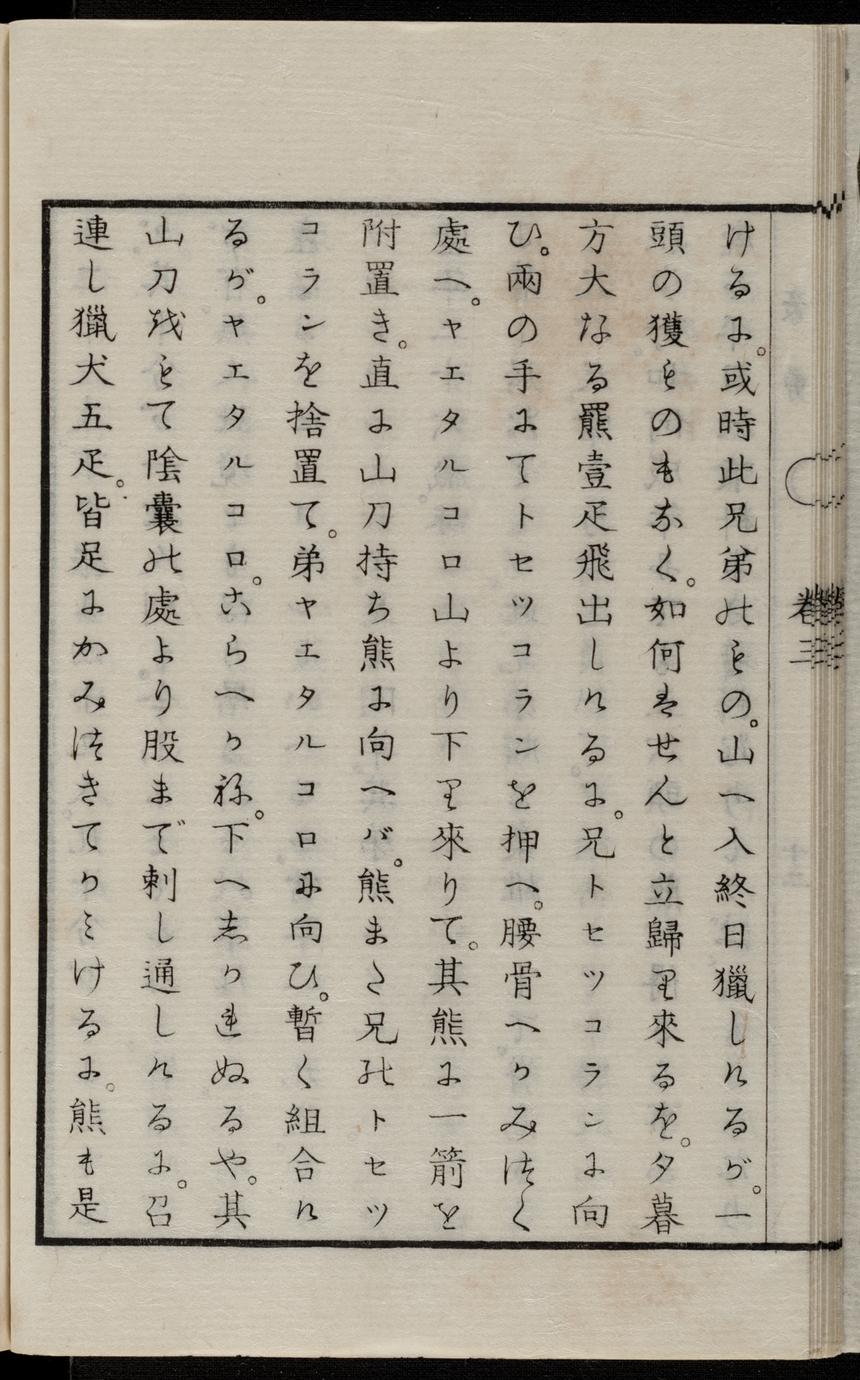 けるに。或時此兄弟のもの。山へ入終日獵しけるが。一
頭の獲ものもなく。如何はせんと立歸り來るを。夕暮
方大なる羆壹疋飛出しけるに。兄トセツコランに向
ひ。兩の手にてトセツコランを押へ。腰骨へかみつく
處へ。ヤエタルコロ山より下り來りて。其熊に一箭を
附置き。直に山刀持ち熊に向へバ。熊また兄のトセツ
コランを捨置て。弟ヤエタルコロに向ひ。暫く組合け
るが。ヤエタルコロ。こらへかね。下へしかれぬるや。其
山刀をもて陰囊の處より股まで刺し通しけるに。召
連し獵犬五疋。皆足にかみつきてかミけるに。熊も是
卷三